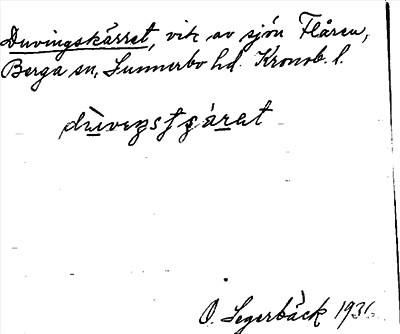 Duvingskärret, vik av sjön Flåren,
Berga sn, Sunnerbo hd. Kronob. l.
O. Segerbäck 1931.